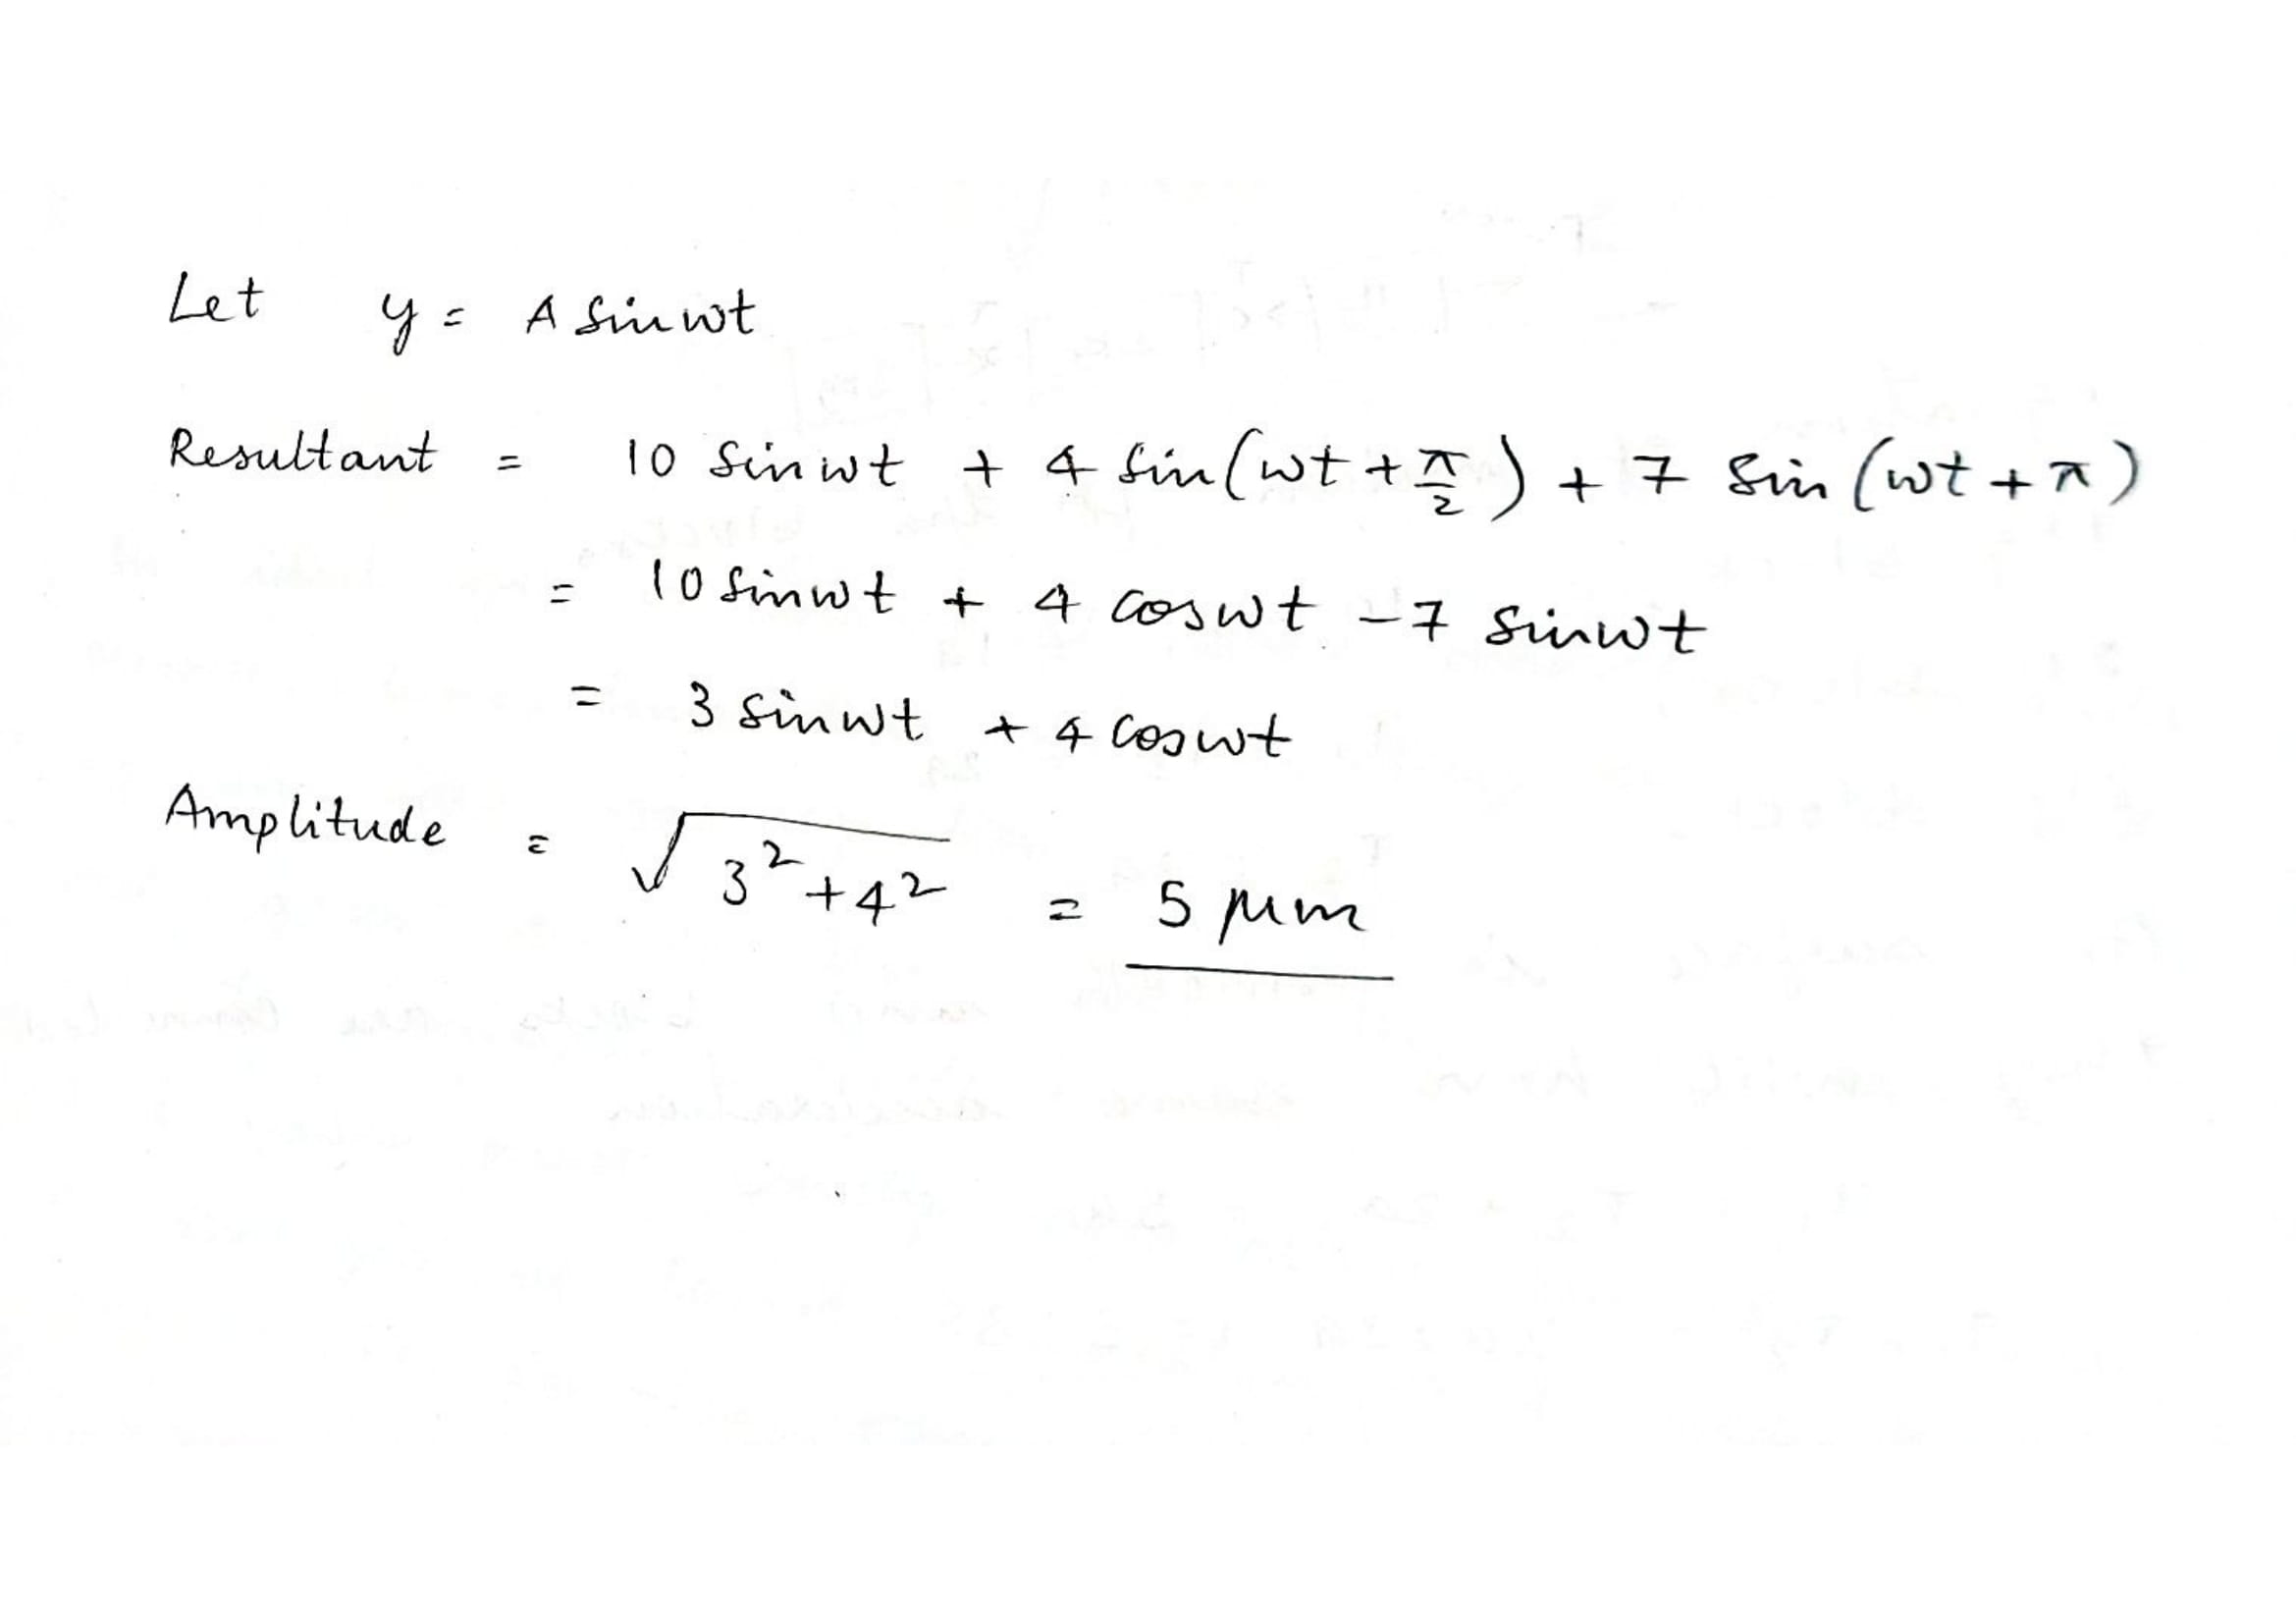 Let y = A sinwt
Resultant = 10 sinwt + 4 sin(wt + π/2) + 7 sin (wt + π)
= 10 sinwt + 4 coswt - 7 sinwt
= 3 sinwt + 4 coswt
Amplitude = √3² + 4² = 5 μm